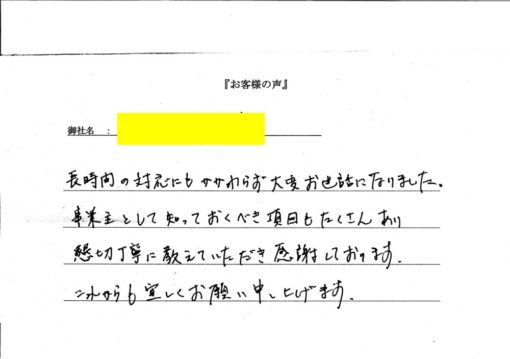 『お客様の声』
御社名 ：
長時間の対応にもかかわらず大変お世話になりました。
事業主として知っておくべき項目もたくさんあり
懇切丁寧に教えていただき感謝しております。
これからも宜しくお願い申し上げます。